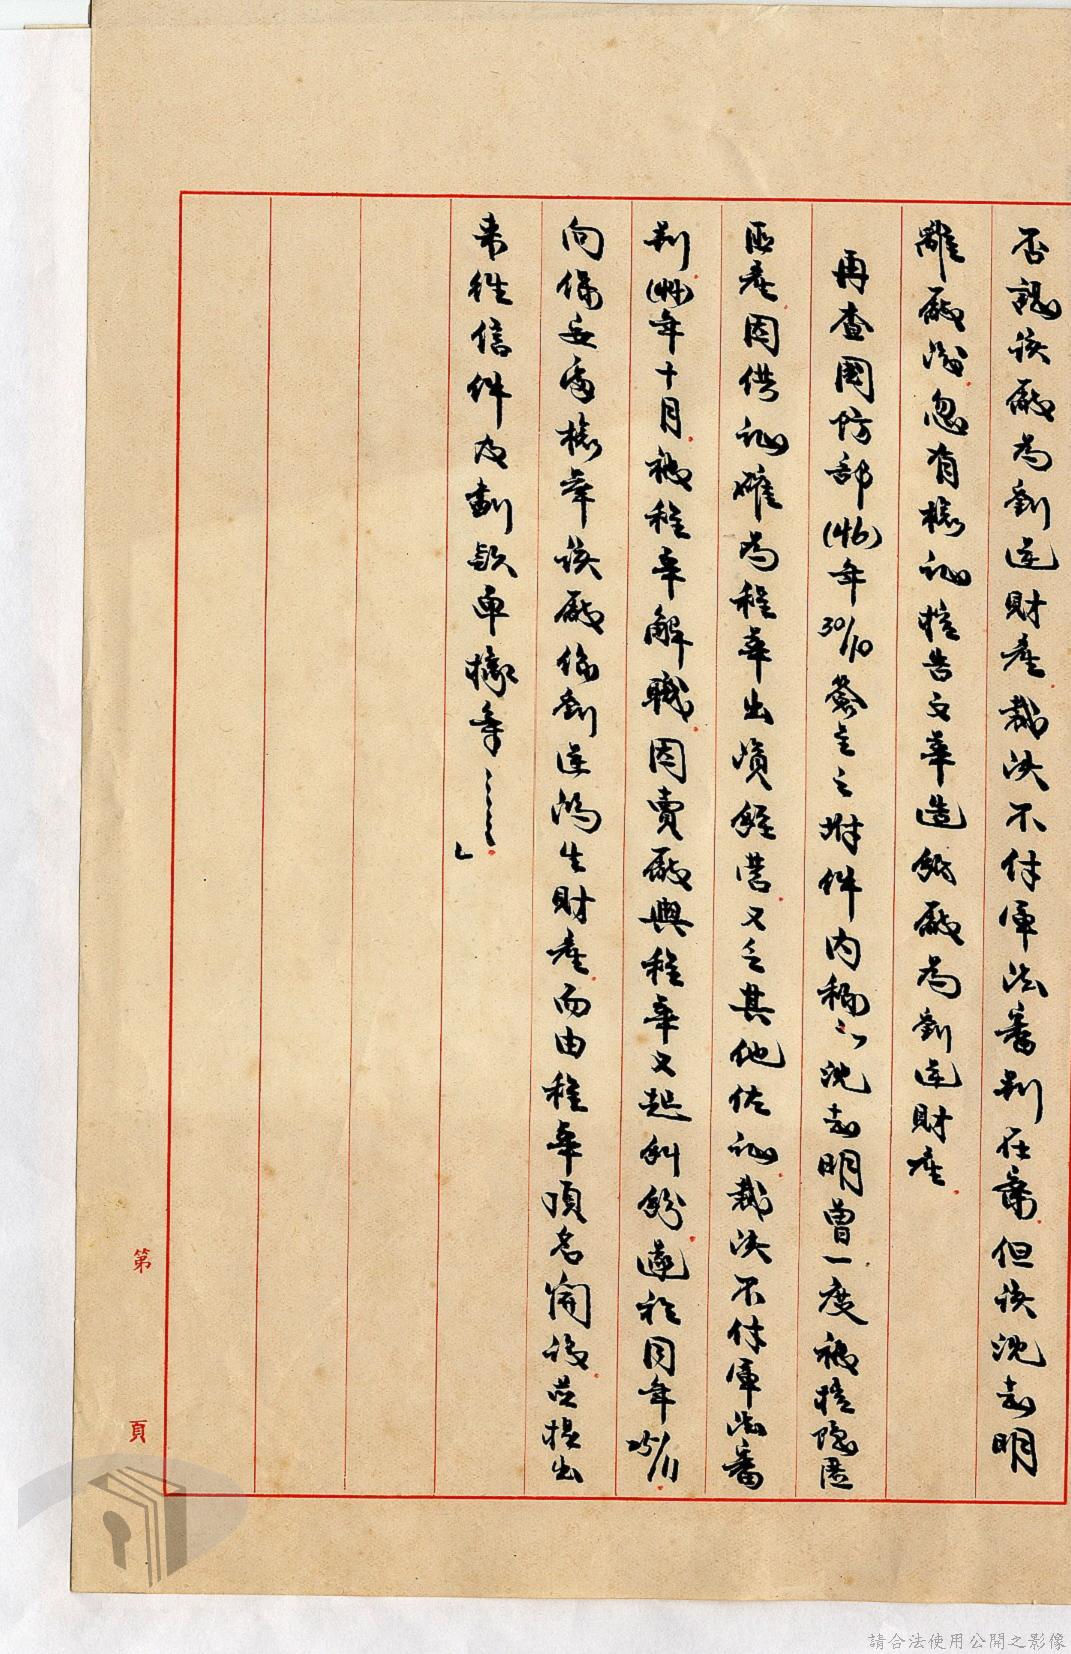 否認該廠為劉逆財產裁決不付軍法審判在案。但該沈志明
離廠後忽有檢証控告文華造紙廠為劉逆財產。
再查國防部(46)年30/10簽呈之附件內稱「沈志明曾一度被控隱匿
匪產。因供証確為程華出資經營。又乏其他佐証。裁決不付軍法審
判。(44)年十月。被程華解職。因賣廠與程華又起糾紛。遂於同年25/11
向保安處檢舉該廠係劉逆鴻生財產。而由程華頂名開設。並提出
來往信件及劃款單據等……。」
第
頁
請合法使用公開之影像